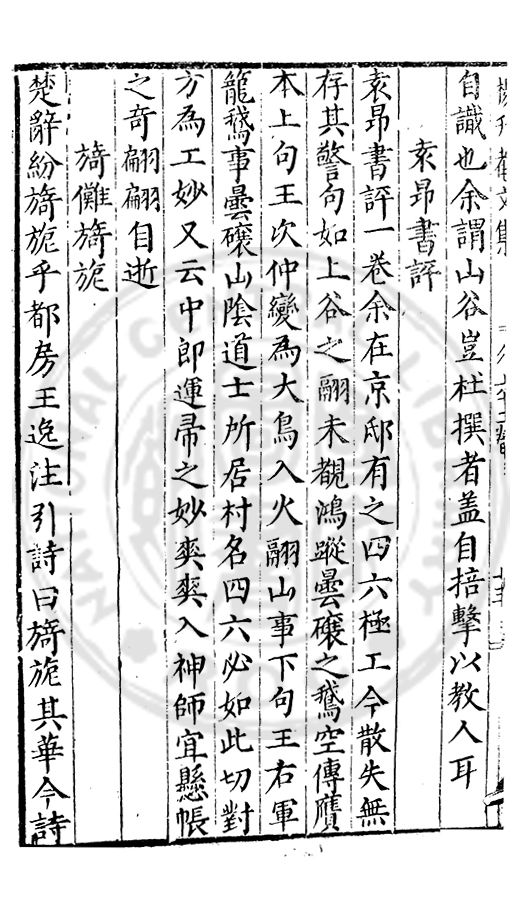 自識也余謂山谷豈杜撰者盖自掊擊以教人耳
袁昂書評
袁昂書評一卷余在京邸有之四六極工今散失無
存其警句如上谷之翮未覩鴻蹤曇礦之鵝空傳贋
本上句王次仲變為大鳥入火翮山事下句王右軍
籠鵝事曇礦山陰道士所居村名四六必如此切對
方為工妙又云中郎運帚之妙爽爽入神師宜懸帳
之竒翩翩自逝
旖儺旖旎
楚辭紛旖旎乎都房王逸注引詩曰旖旎其華今詩